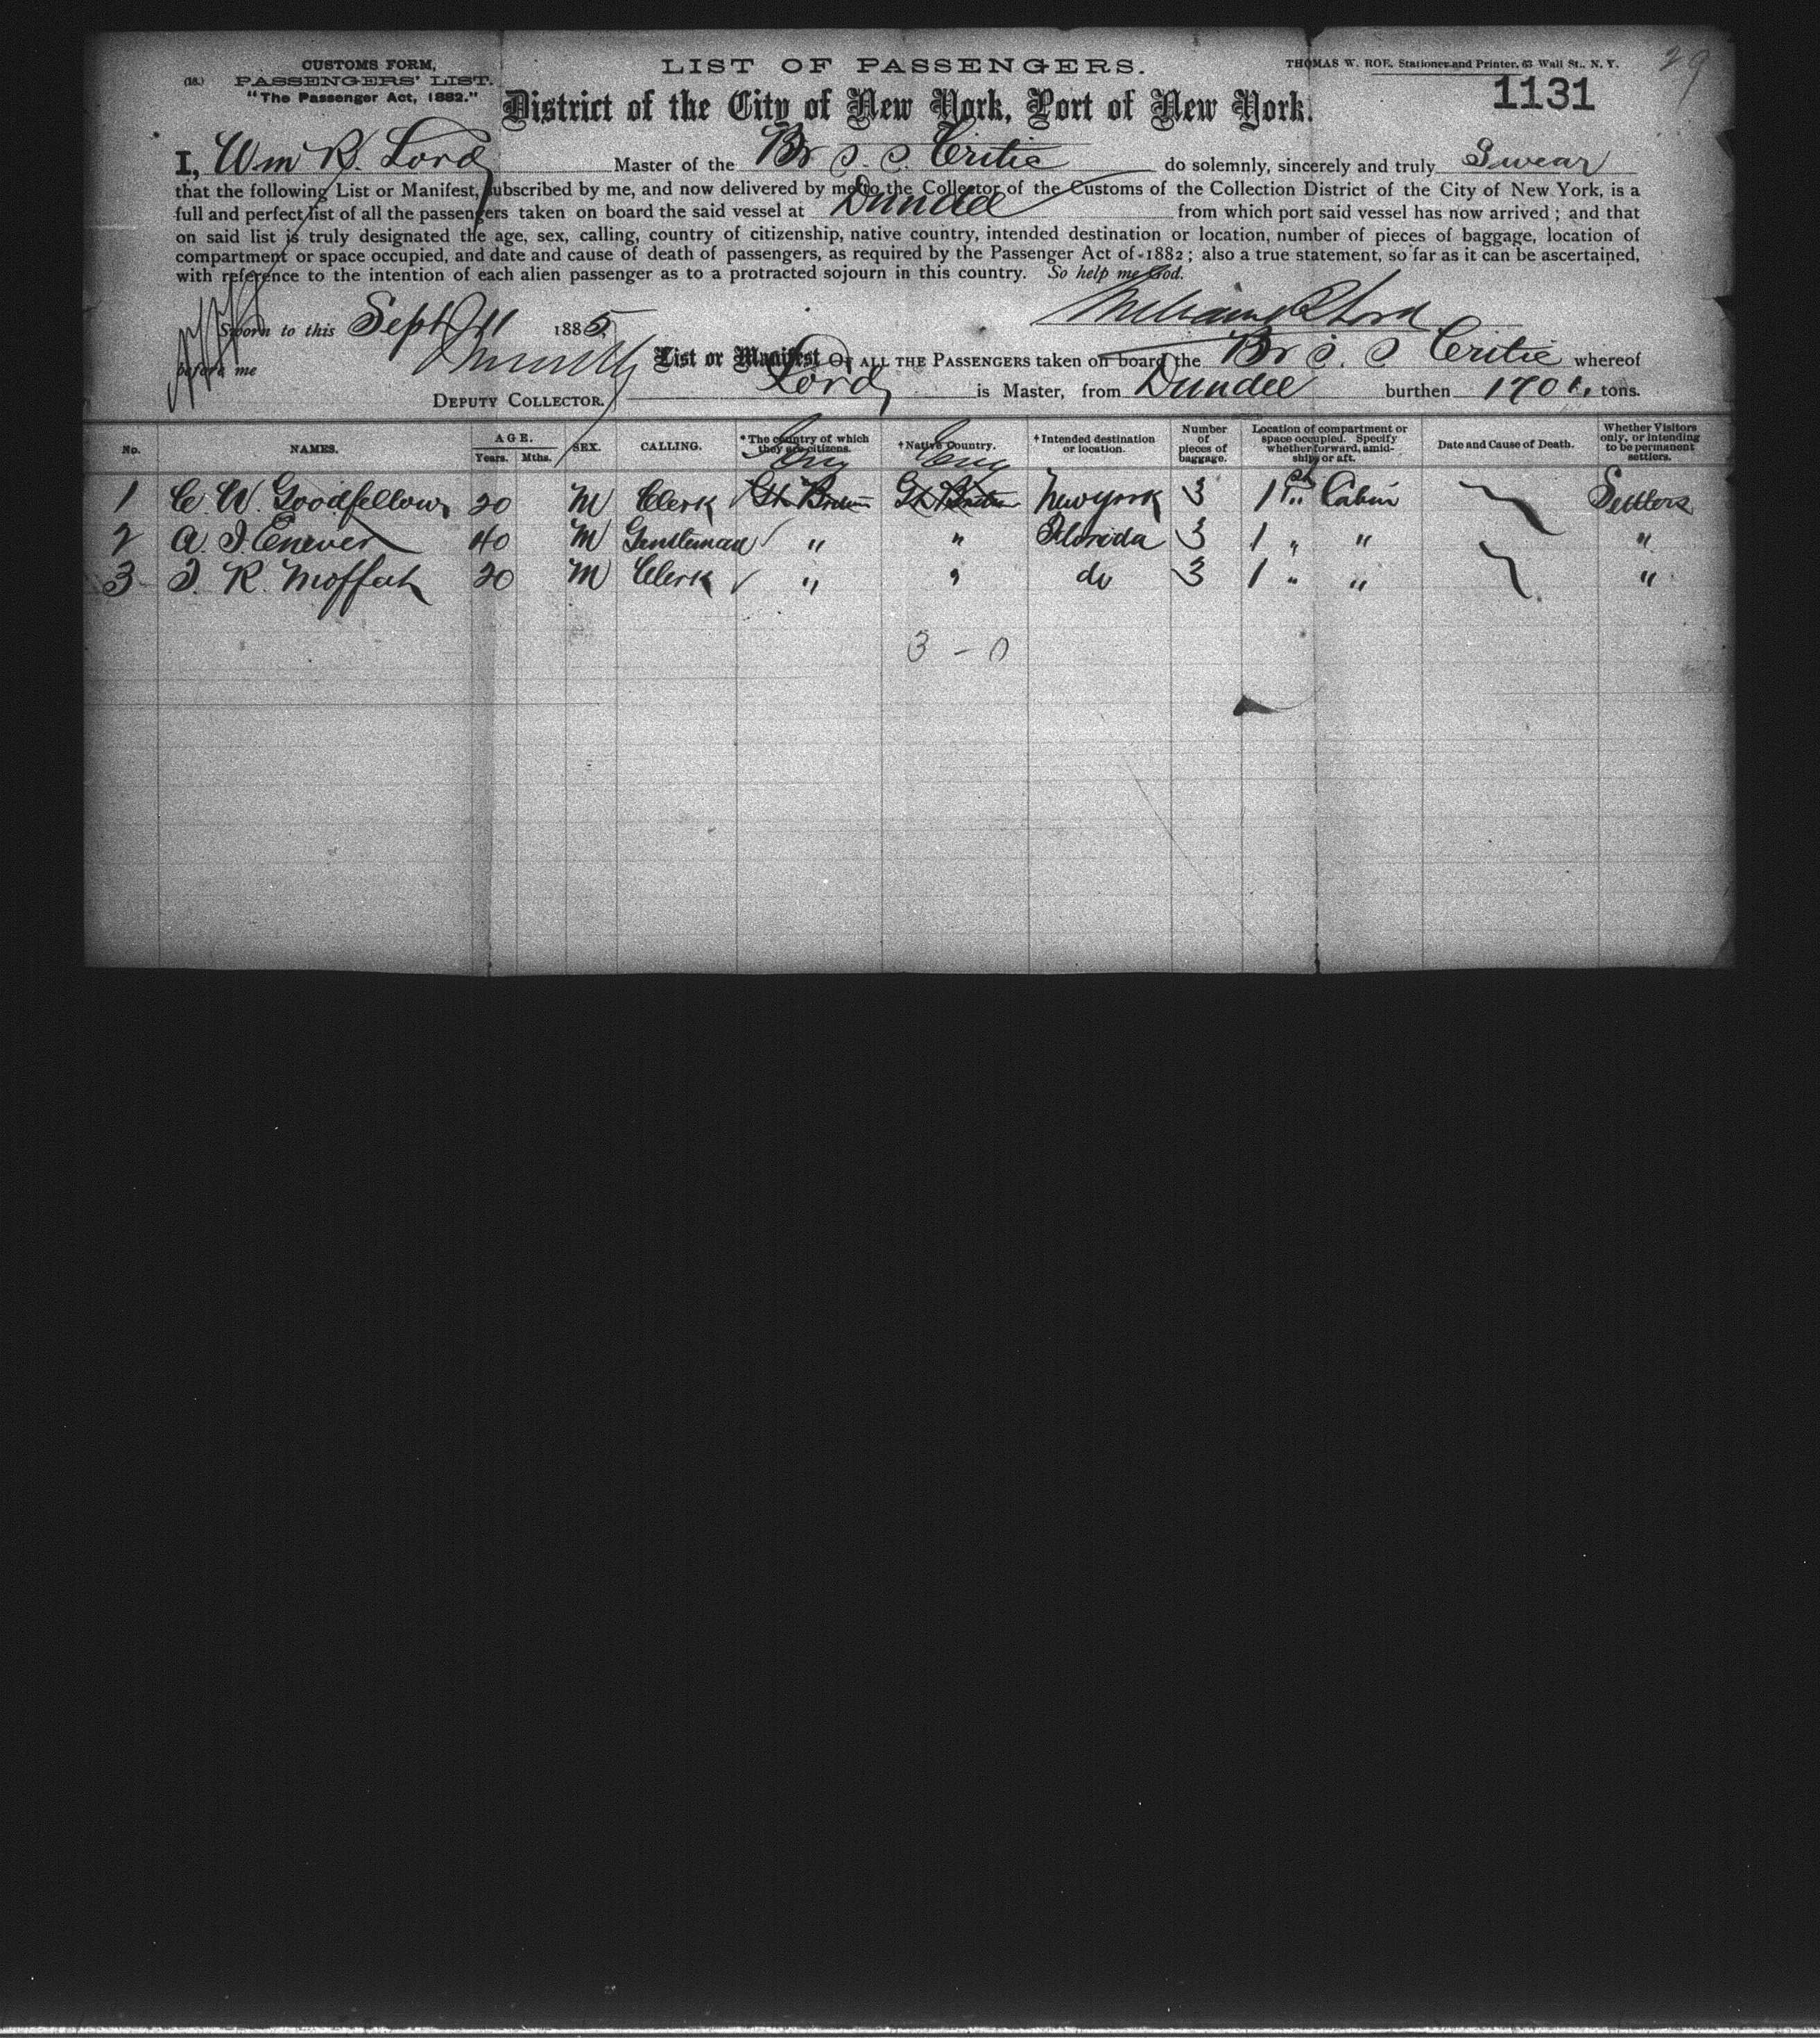 29
CUSTOMS FORM,
(18.) PASSENGERS' LIST.
"The Passenger Act, 1882."
LIST OF PASSENGERS.
THOMAS W. ROE, Stationer and Printer, 63 Wall St., N. Y.
1131
District of the City of New York, Port of New York.
I, Wm R. Lord Master of the Br S. S. Critic do solemnly, sincerely and truly Swear
that the following List or Manifest, subscribed by me, and now delivered by me to the Collector of the Customs of the Collection District of the City of New York, is a
full and perfect list of all the passengers taken on board the said vessel at Dundee from which port said vessel has now arrived ; and that
on said list is truly designated the age, sex, calling, country of citizenship, native country, intended destination or location, number of pieces of baggage, location of
compartment or space occupied, and date and cause of death of passengers, as required by the Passenger Act of 1882 ; also a true statement, so far as it can be ascertained,
with reference to the intention of each alien passenger as to a protracted sojourn in this country. So help me God.
Sworn to this Sept 11 1885 William R Lord
before me
List or Manifest OF ALL THE PASSENGERS taken on board the Br S. S Critic whereof
DEPUTY COLLECTOR. Lord is Master, from Dundee burthen tons.
No. NAMES. AGE. Years. Mths. SEX. CALLING. *The country of which they are citizens. †Native Country. †Intended destination or location. Number of pieces of baggage. Location of compartment or space occupied. Specify whether forward, amidships or aft. Date and Cause of Death. Whether Visitors only, or intending to be permanent settlers.
Eng Eng
1 C. W. Goodfellow 20 M Clerk Gt Britain Gt Britain New York 3 1st Cabin Settlers
2 A. J. Enever 40 M Gentleman " " Florida 3 1 " " "
3 J. R. Moffat 20 M Clerk " " do 3 1 " " "
3 - 0